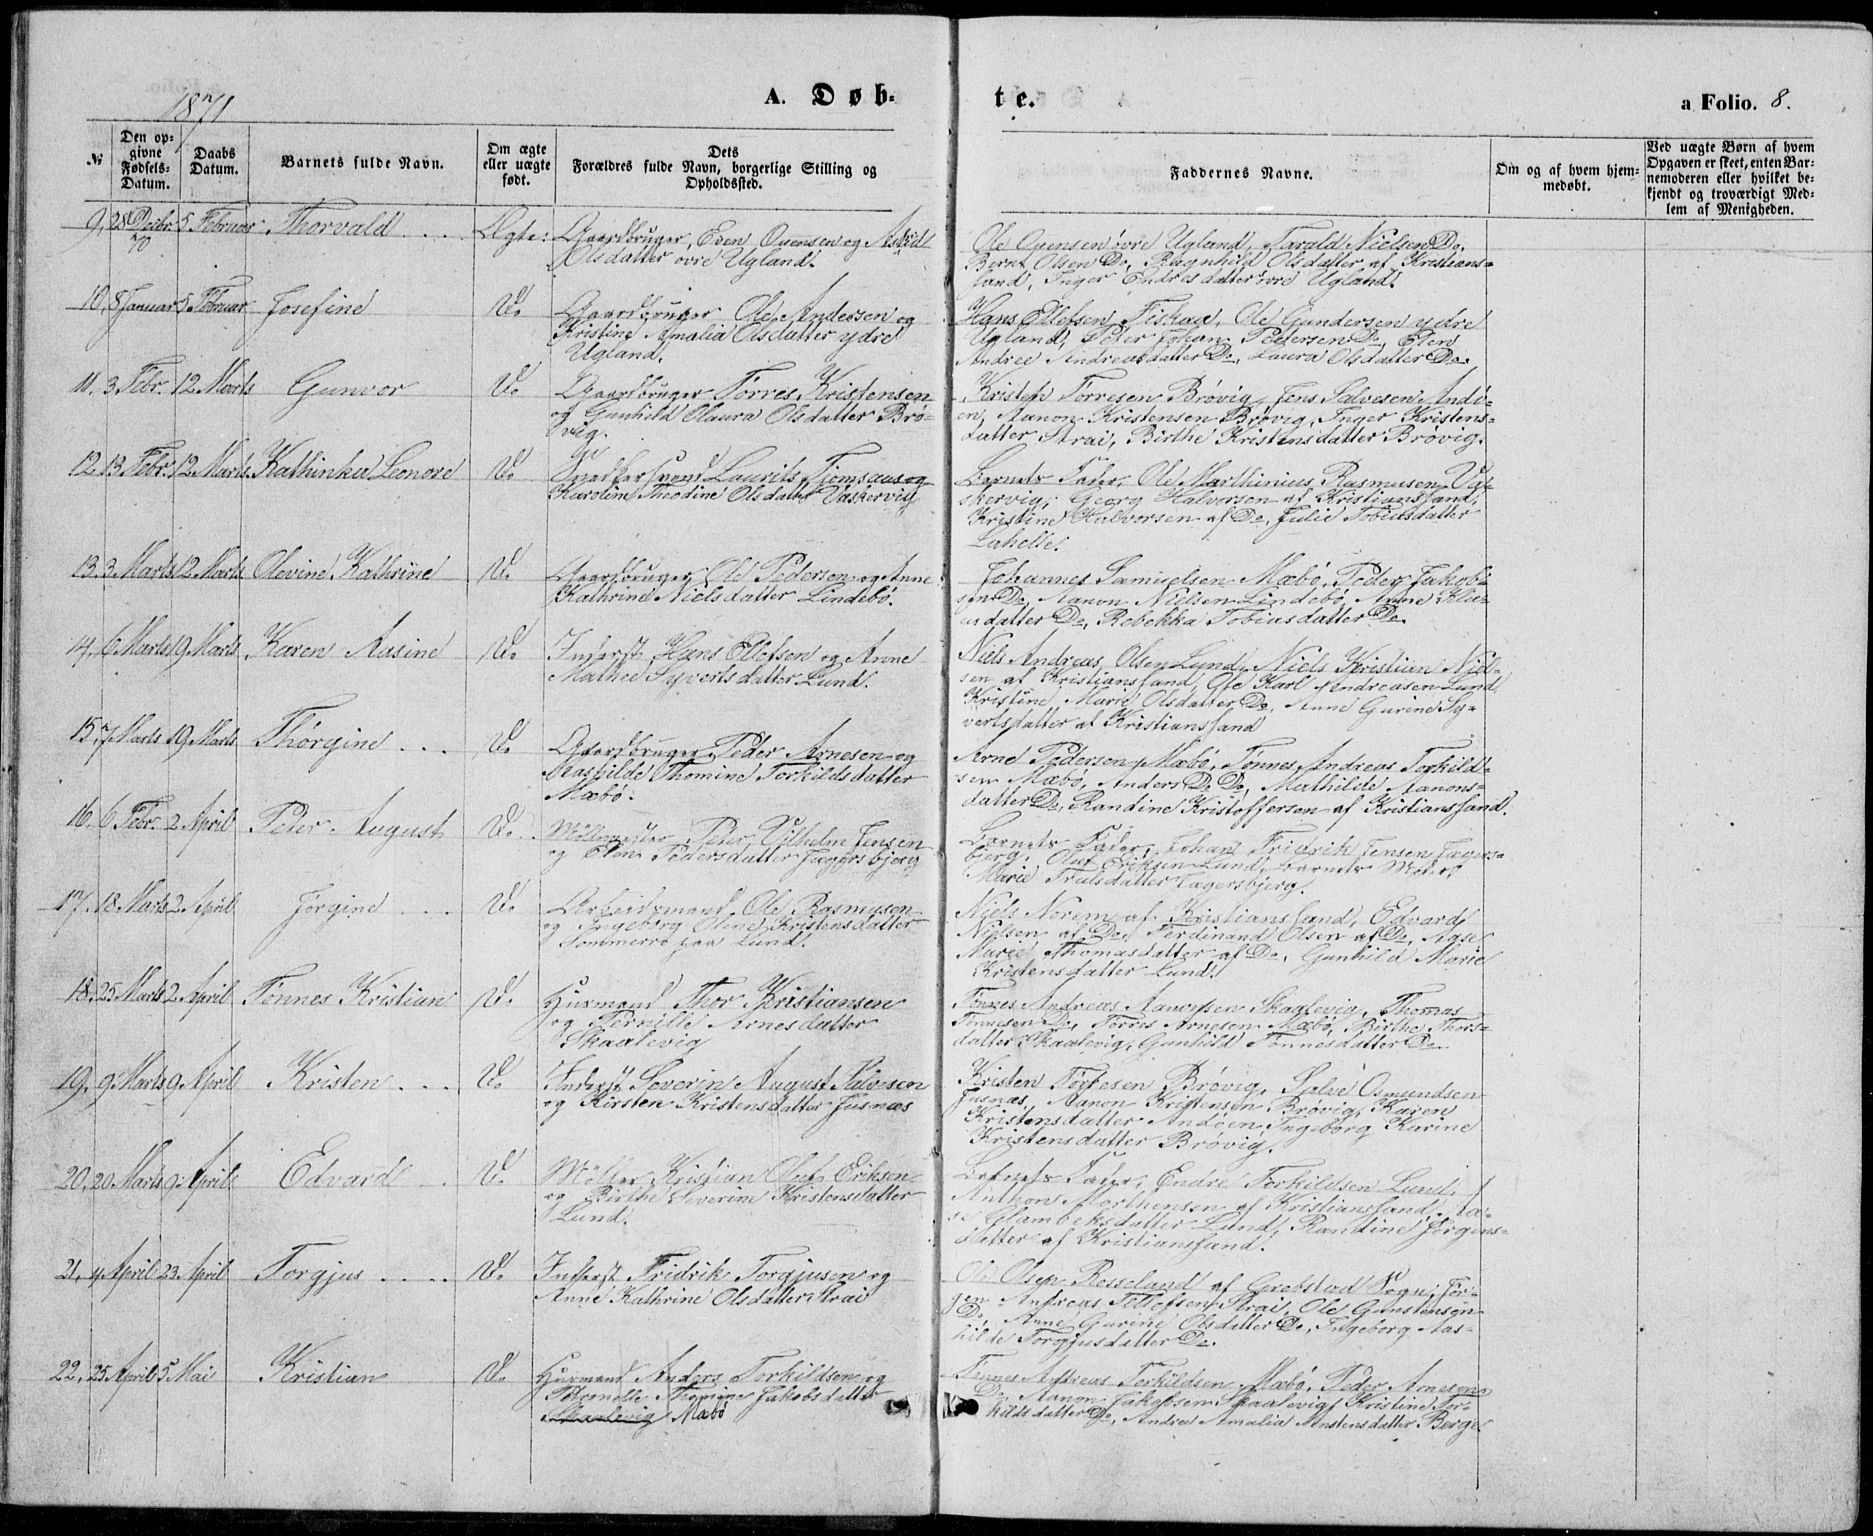 1871
A. Døb-
te.
a Folio. 8.
№
Den op-
givne
Fødsels-
Datum.
Daabs
Datum.
Barnets fulde Navn.
Om ægte
eller uægte
født.
Dets
Forældres fulde Navn, borgerlige Stilling og
Opholdssted.
Faddernes Navne.
Om og af hvem hjem-
medøbt.
Ved uægte Børn af hvem
Opgaven er skeet, enten Bar-
nemoderen eller hvilket be-
kjendt og troværdigt Med-
lem af Menigheden.
9. 28 Decbr. 70 5 Februar Thorvald Ægte: Gaardbruger, Even Ovensen og Astrid
Olsdatter øvre Ugland.
Ole Ovensen øvre Ugland, Tarald Nielsen Do,
Bernt Olsen Do, Ragnhild Olsdatter af Kristians-
sand, Inger Endresdatter øvre Ugland.
10. 8 Januar 5 Februar Josefine Do Gaardbruger Ole Andersen og
Kristine Amalia Olsdatter ydre
Ugland.
Hans Ellefsen Fiskaa, Ole Gundersen ydre
Ugland, Peter Johan Pedersen Do, Elen
Andrea Andreasdatter Do, Laura Olsdatter Do.
11. 3 Febr. 12 Marts Gunvor Do Gaardbruger Torres Kristensen
og Gunhild Olaura Olsdatter Brø-
vig.
Kristen Torresen Brøvig, Jens Salvesen Andø-
en, Aanon Kristensen Brøvig, Inger Kristens-
datter Strai, Birthe Kristensdatter Brøvig.
12. 13 Febr. 12 Marts Kathinka Leonore Do Snedkersvend Laurits Tjomsaas og
Karoline Theodine Olsdatter Vaskervig
Barnets Fader, Ole Marthinius Rasmusen Va-
skervig, Georg Halvorsen af Kristianssand,
Kristine Halvorsen af Do, Julie Tobiasdatter
Lahelle.
13. 3 Marts 12 Marts Olevine Kathrine Do Gaardbruger Ole Pedersen og Anne
Kathrine Nielsdatter Lindebø.
Johannes Samuelsen Mæbø, Peder Jakob-
sen Do, Aanon Nielsen Lindebø, Anne Eli-
asdatter Do, Rebekka Tobiasdatter Do.
14. 6 Marts 19 Marts Karen Aasine Do Inderst Hans Ellefsen og Anne
Mathea Syvertsdatter Lund.
Niels Andreas Olsen Lund, Niels Kristian Niel-
sen af Kristianssand, Ole Karl Andreasen Lund,
Kristine Marie Olsdatter Do, Anne Gurine Sy-
vertsdatter af Kristianssand
15. 7 Marts 19 Marts Thørgine Do Gaardbruger Peder Arnesen og
Aashilde Thomine Torkildsdatter
Mæbø.
Arne Pedersen Mæbø, Tønnes Andreas Torkild-
sen Mæbø, Anders Do Do, Mathilde Aanons-
datter Do, Randine Kristoffersen af Kristianssand.
16. 6 Febr. 2 April Peter August Do Møllemester Peter Vilhelm Jensen
og Elen Pedersdatter Jægersbjerg
Barnets Fader, Johan Fridrik Jensen Jægers-
bjerg, Oluf Eriksen Lund, Barnets Moder,
Marie Trulsdatter Jægersbjerg.
17. 18 Marts 2 April Jørgine Do Arbeidsmand Ole Rasmusen
og Ingeborg Olene Kristensdatter
Sommerro paa Lund.
Niels Norem af Kristianssand, Edvard
Nielsen af Do, Ferdinand Olsen af Do, Aase
Marie Thomasdatter af Do, Gunhild Marie
Kristensdatter Lund.
18. 25 Marts 2 April Tønnes Kristian Do Husmand Thor Kristiansen
og Pernille Arnesdatter
Skaalevig
Tønnes Andreas Aanonsen Skaalevig, Thomas
Tønnesen Do, Torres Arnesen Mæbø, Birthe Thors-
datter Skaalevig, Gunhild Tønnesdatter Do.
19. 9 Marts 9 April Kristen Do Inderst Severin August Salvesen
og Kirsten Kristensdatter Jusnæs
Kristen Torresen Brøvig, Salve Osmundsen
Jusnæs, Aanon Kristensen Brøvig, Karen
Kristensdatter Andøen, Ingeborg Karine
Kristensdatter Brøvig.
20. 20 Marts 9 April Edvard Do Møller Kristian Oluf Eriksen
og Birthe Severine Kristensdatter
Lund.
Barnets Fader, Endre Torkildsen Lund,
Anthon Morthensen af Kristianssand, Aa-
se Glambeksdatter Lund, Randine Jørgens-
datter af Kristianssand.
21. 4 April 23 April Torgjus Do Inderst Fridrik Torgjusen og
Anne Kathrine Olsdatter Strai
Ole Olsen Rosseland af Grebstad Sogn, Jør-
gen Andreas Tellofsen Strai, Ole Gunstensen
Do, Anne Gurine Olsdatter Do, Ingeborg Aas-
hilde Torgjusdatter Do.
22. 25 April 5 Mai Kristian Do Husmand Anders Torkildsen og
Petronelle Thomine Jakobsdatter
Skaalevig Mæbø
Tønnes Andreas Torkildsen Mæbø, Peder Arnesen
Do, Aanon Jakobsen Skaalevig, Kristine Tor-
kildsdatter Do, Andrea Amalia Anstensdatter Berge.